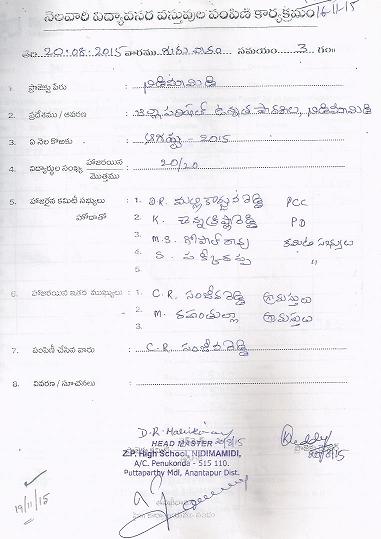 నెలవారి విద్యావసర వస్తువుల పంపిణి కార్యక్రమం 16-11-15
తేది 20-08-2015 వారము గురువారం సమయం 3 గం॥
1. ప్రాజెక్టు పేరు : నిడిమామిడి
2. ప్రదేశము / ఆవరణ : జిల్లా పరిషత్ ఉన్నత పాఠశాల, నిడిమామిడి
3. ఏ నెల కొరకు : ఆగష్టు - 2015
4. విద్యార్థుల సంఖ్య హాజరయిన / మొత్తము : 20/20
5. హాజరైన కమిటీ సభ్యులు : 1. D.R. మల్లికార్జున రెడ్డి PCC
హోదాతో 2. K. చెన్నక్రిష్ణారెడ్డి PD
3. M.S. గోపాల్ రావు కమిటీ సభ్యులు
4. "
5.
6. హాజరయిన ఇతర ముఖ్యులు : 1. C.R. సంజీవరెడ్డి గ్రామస్తులు
2. M. రహంతుల్లా గ్రామస్తులు
3.
7. పంపిణీ చేసిన వారు : C.R. సంజీవరెడ్డి
8. వివరణ / సూచనలు :
D.R. Mallikarjun
HEAD MASTER 20/8/15
Z.P. High School, NIDIMAMIDI,
A/C. Penukonda - 515 110.
Puttaparthy Mdl, Anantapur Dist.
Reddy
20/8/15
19/11/15